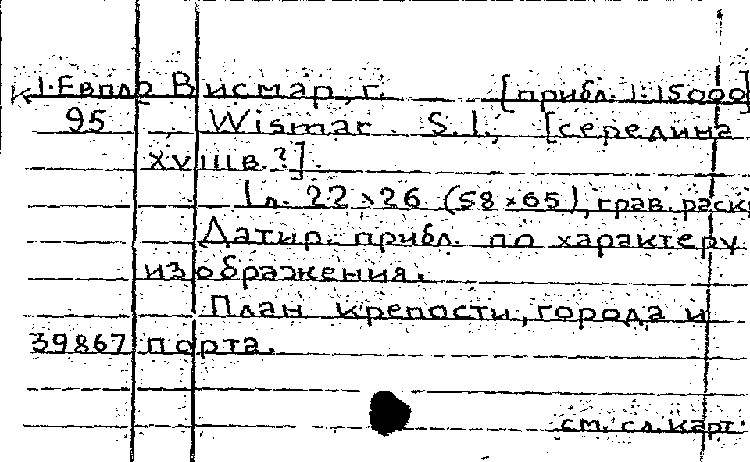 К 1.Евпл2 Висмар, г. [прибл. 1:15000]
95 , Wismar. S.l., [середина
XVIIIв.?].
1 л. 22×26 (58×65), грав. раск
Датир. прибл. по характеру
изображения.
План крепости, города и
39867 порта.
см. сл. карт.